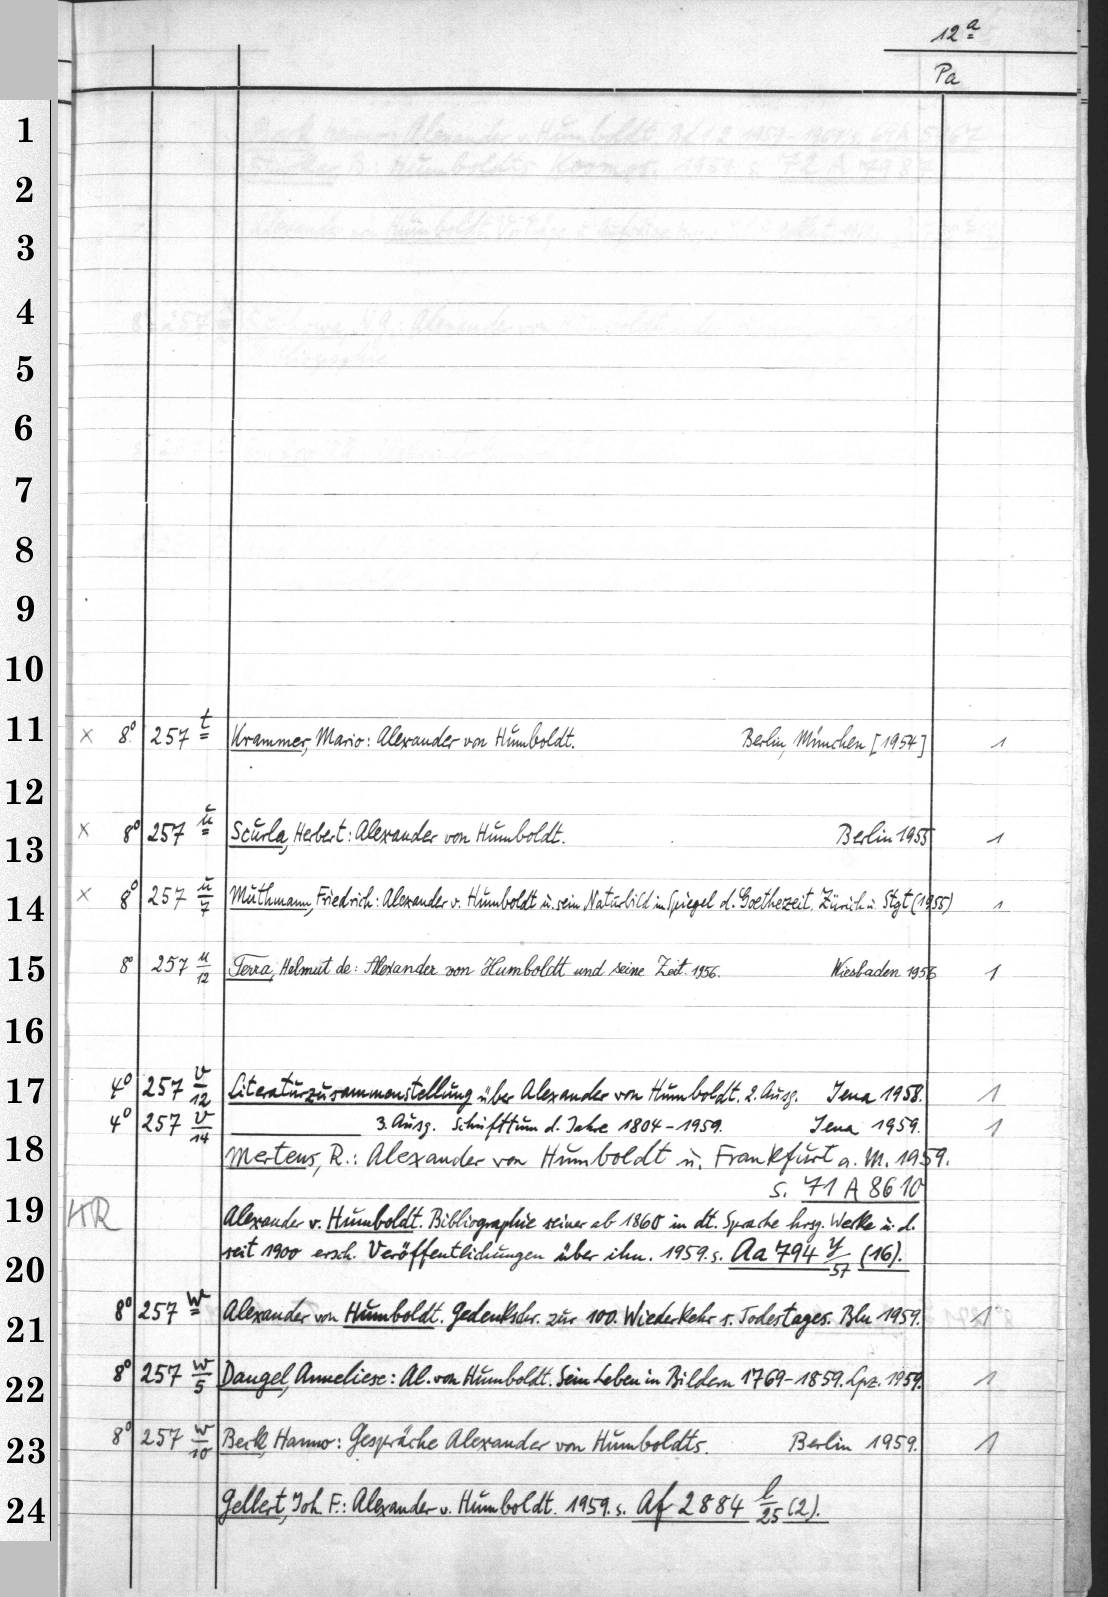 12 a
Pa
1
2
3
4
5
6
7
8
9
10
11 x 8° 257 t Krammer, Mario: Alexander von Humboldt. Berlin, München [1954] 1
12
13 x 8° 257 u Scurla, Herbert: Alexander von Humboldt. Berlin 1955 1
14 x 8° 257 u/7 Muthmann, Friedrich: Alexander v. Humboldt u. sein Naturbild im Spiegel d. Goethezeit. Zürich u. Stgt (1955) 1
15 8° 257 u/12 Terra, Helmut de: Alexander von Humboldt und seine Zeit. 1956. Wiesbaden 1956 1
16
17 4° 257 v/12 Literaturzusammenstellung über Alexander von Humboldt. 2. Ausg. Jena 1958. 1
4° 257 v/14 3. Ausg. Schrifttum d. Jahre 1804-1959. Jena 1959. 1
18 Mertens, R.: Alexander von Humboldt u. Frankfurt a. M. 1959.
s. 71 A 8610
19 HR Alexander v. Humboldt. Bibliographie seiner ab 1860 in dt. Sprache hrsg. Werke u. d.
20 seit 1900 ersch. Veröffentlichungen über ihn. 1959. s. Aa 794 y/57 (16).
21 8° 257 w Alexander von Humboldt. Gedenkschr. zur 100. Wiederkehr s. Todestages. Bln 1959. 1
22 8° 257 w/5 Dangel, Anneliese: Al. von Humboldt. Sein Leben in Bildern 1769-1859. Lpz. 1959. 1
23 8° 257 w/10 Beck, Hanno: Gespräche Alexander von Humboldts. Berlin 1959. 1
24 Gellert, Joh. F.: Alexander v. Humboldt. 1959. s. Af 2884 l/25 (2).